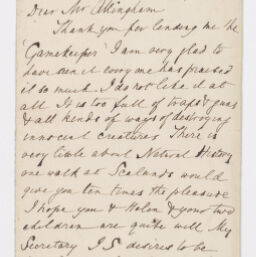 Dear Mr Allingham
Thank you for lending me the
'Gamekeeper' I am very glad to
have seen it every one has praised
it so much I do not like it at
all It is too full of traps & guns
& all kinds of ways of destroying
innocent creatures There is
very little about Natural History
one walk at Scalands would
give you ten times the pleasure
I hope you & Helen & your two
children are quite well My
Secretary I S desires to be